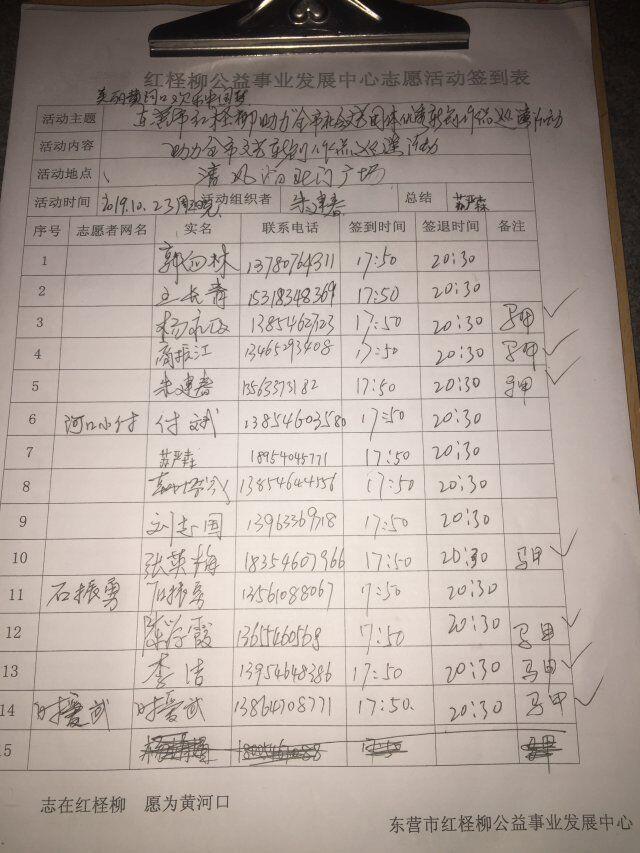 红柽柳公益事业发展中心志愿活动签到表
美丽黄河口欢乐中国梦
活动主题 东营市红柽柳助力全市社会文艺团体优秀新创作品巡演活动
活动内容 助力全市文艺新创作品巡演活动
活动地点 清风湖 广场
活动时间 2019.10.23 活动组织者 朱建春 总结 苏严森
序号 志愿者网名 实名 联系电话 签到时间 签退时间 备注
1 郭 林 13780764311 17:50 20:30
2 王长青 15318348369 17:50 20:30
3 杨 1385462723 17:50 20:30 马甲
4 商振江 13465293408 17:50 20:30 马甲
5 朱建春 15563373182 17:50 20:30 马甲
6 河口小付 付斌 13854603580 17:50 20:30
7 苏严森 18954045771 17:50 20:30
8 13854644556 17:50 20:30
9 刘志国 13963369718 17:50 20:30
10 张英梅 18354607966 17:50 20:30 马甲
11 石振勇 石振勇 13561088067 17:50 20:30
12 学霞 1365460568 17:50 20:30 马甲
13 李洁 13954648386 17:50 20:30 马甲
14 时爱武 时爱武 13864708771 17:50. 20:30 马甲
15 17:50 马甲
志在红柽柳 愿为黄河口
东营市红柽柳公益事业发展中心